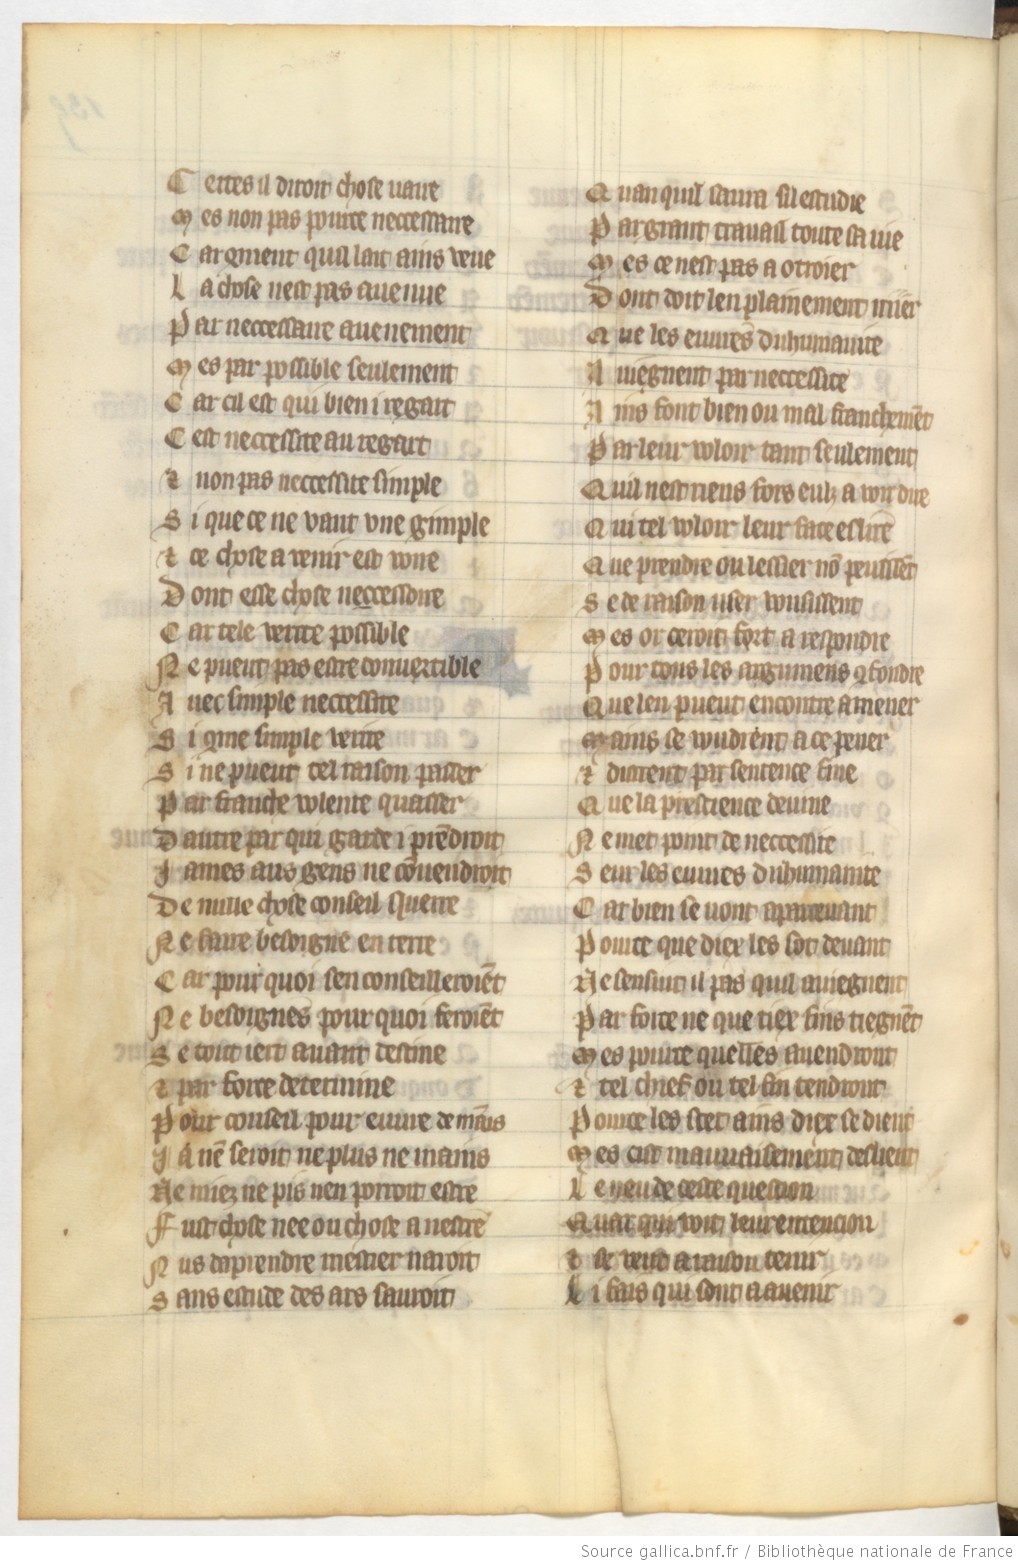 C ertes il diroit chose vaire
M es non pas pource neccessaire
C ar qment quil lait ains veue
L a chose nest pas auenue
P ar neccessaire auenement
M es par possible seulement
C ar cil est qui bien i regart
C est neccessite au regart
Et non pas neccessite simple
S i que ce ne vaut vne gimple
Et ce chose a venir est voire
D ont esse chose neccessoire
C ar tele verite possible
N e pueut pas estre conuertible
A uec simple neccessite
S i qme simple verite
S i ne pueut tel raison passer
P ar franche volente quasser
D autre part qui garde i prēdroit
J ames aus gens ne cōuendroit
D e nule chose conseil querre
N e faire besoigne en terre
C ar pour quoi sen conseilleroiēt
N e besoignes pour quoi feroiēt
S e tout iert auant destine
Et par force determine
P our conseil pour euure de mains
J a nē seroit ne plus ne mains
Ne miez ne pis nen porroit estre
F ust chose nee ou chose a nestre
N us daprendre mestier naroit
S ans estude des ars sauroit
Q uan quil saura sil estudie
P ar grant trauail toute sa uie
M es ce nest pas a otroier
D ont doit len plainement nier
Q ue les euures dumanite
A uiegnent par neccessite
A ins font bien ou mal franchemēt
P ar leur voloir tant seulement
Q uil nest riens fors eulz a voir dire
Q ui tel voloir leur face eslire
Q ue prendre ou lessier nō peussēt
S e de raison user vousissent
M es or ceroit fort a respondre
P our tous les argumens qfondre
Q ue len pueut encontre amener
M ains se voudrent a ce pener
Et distrent par sentence fine
Q ue la prescience deuine
N e met point de neccessite
S eur les euures dumanite
C ar bien se uont aparceuant
P ource que diex les sot deuant
Ne sensuit il pas quil auiegnent
P ar force ne que tiex fins tiegnēt
M es pource quelles auendront
Et tel chief ou tel fin tendront
P ource les scet ains diex se dient
M es cist mauuaisement deslient
L e neu de ceste question
Q uar qui voit leur entencion
Et se veut a raison tenir
L i fais qui sont a auenir
Source gallica.bnf.fr / Bibliothèque nationale de France